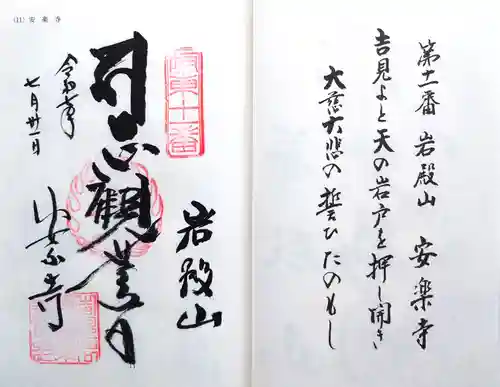 第十一番 岩殿山 安楽寺
吉見よと天の岩戸を押し開き
大慈大悲の誓ひたのもし
(11) 安楽寺
坂東十一番
岩殿山
聖観世音
安楽寺
七月卅一日